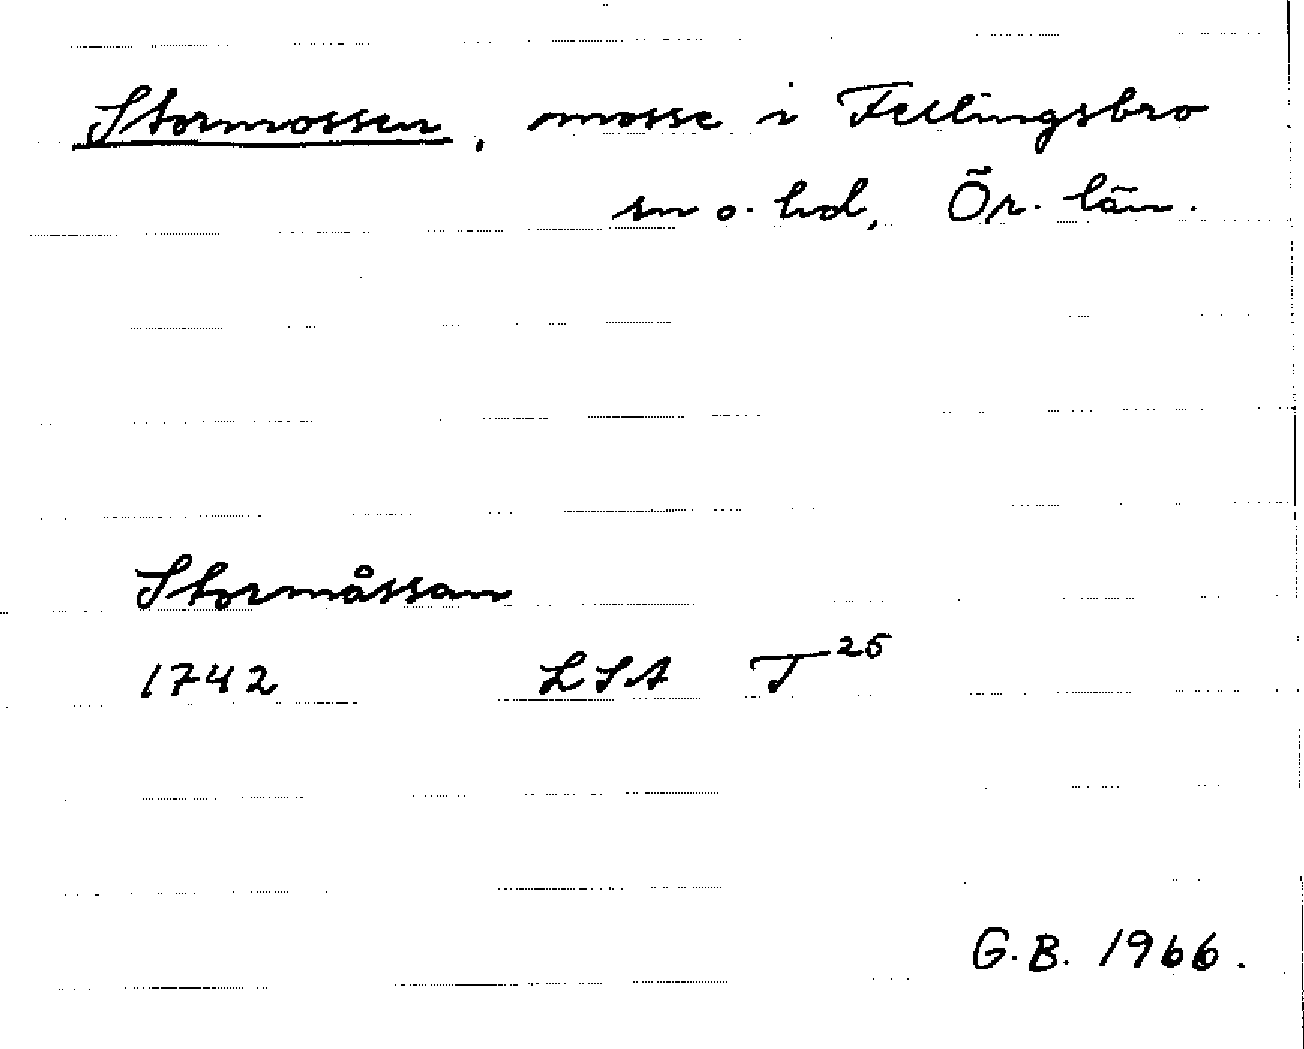 Stormossen, mosse i Fellingsbro
sn o. hd, Ör. län.
Stormåssan
1742 LSA T²⁵
G.B. 1966.